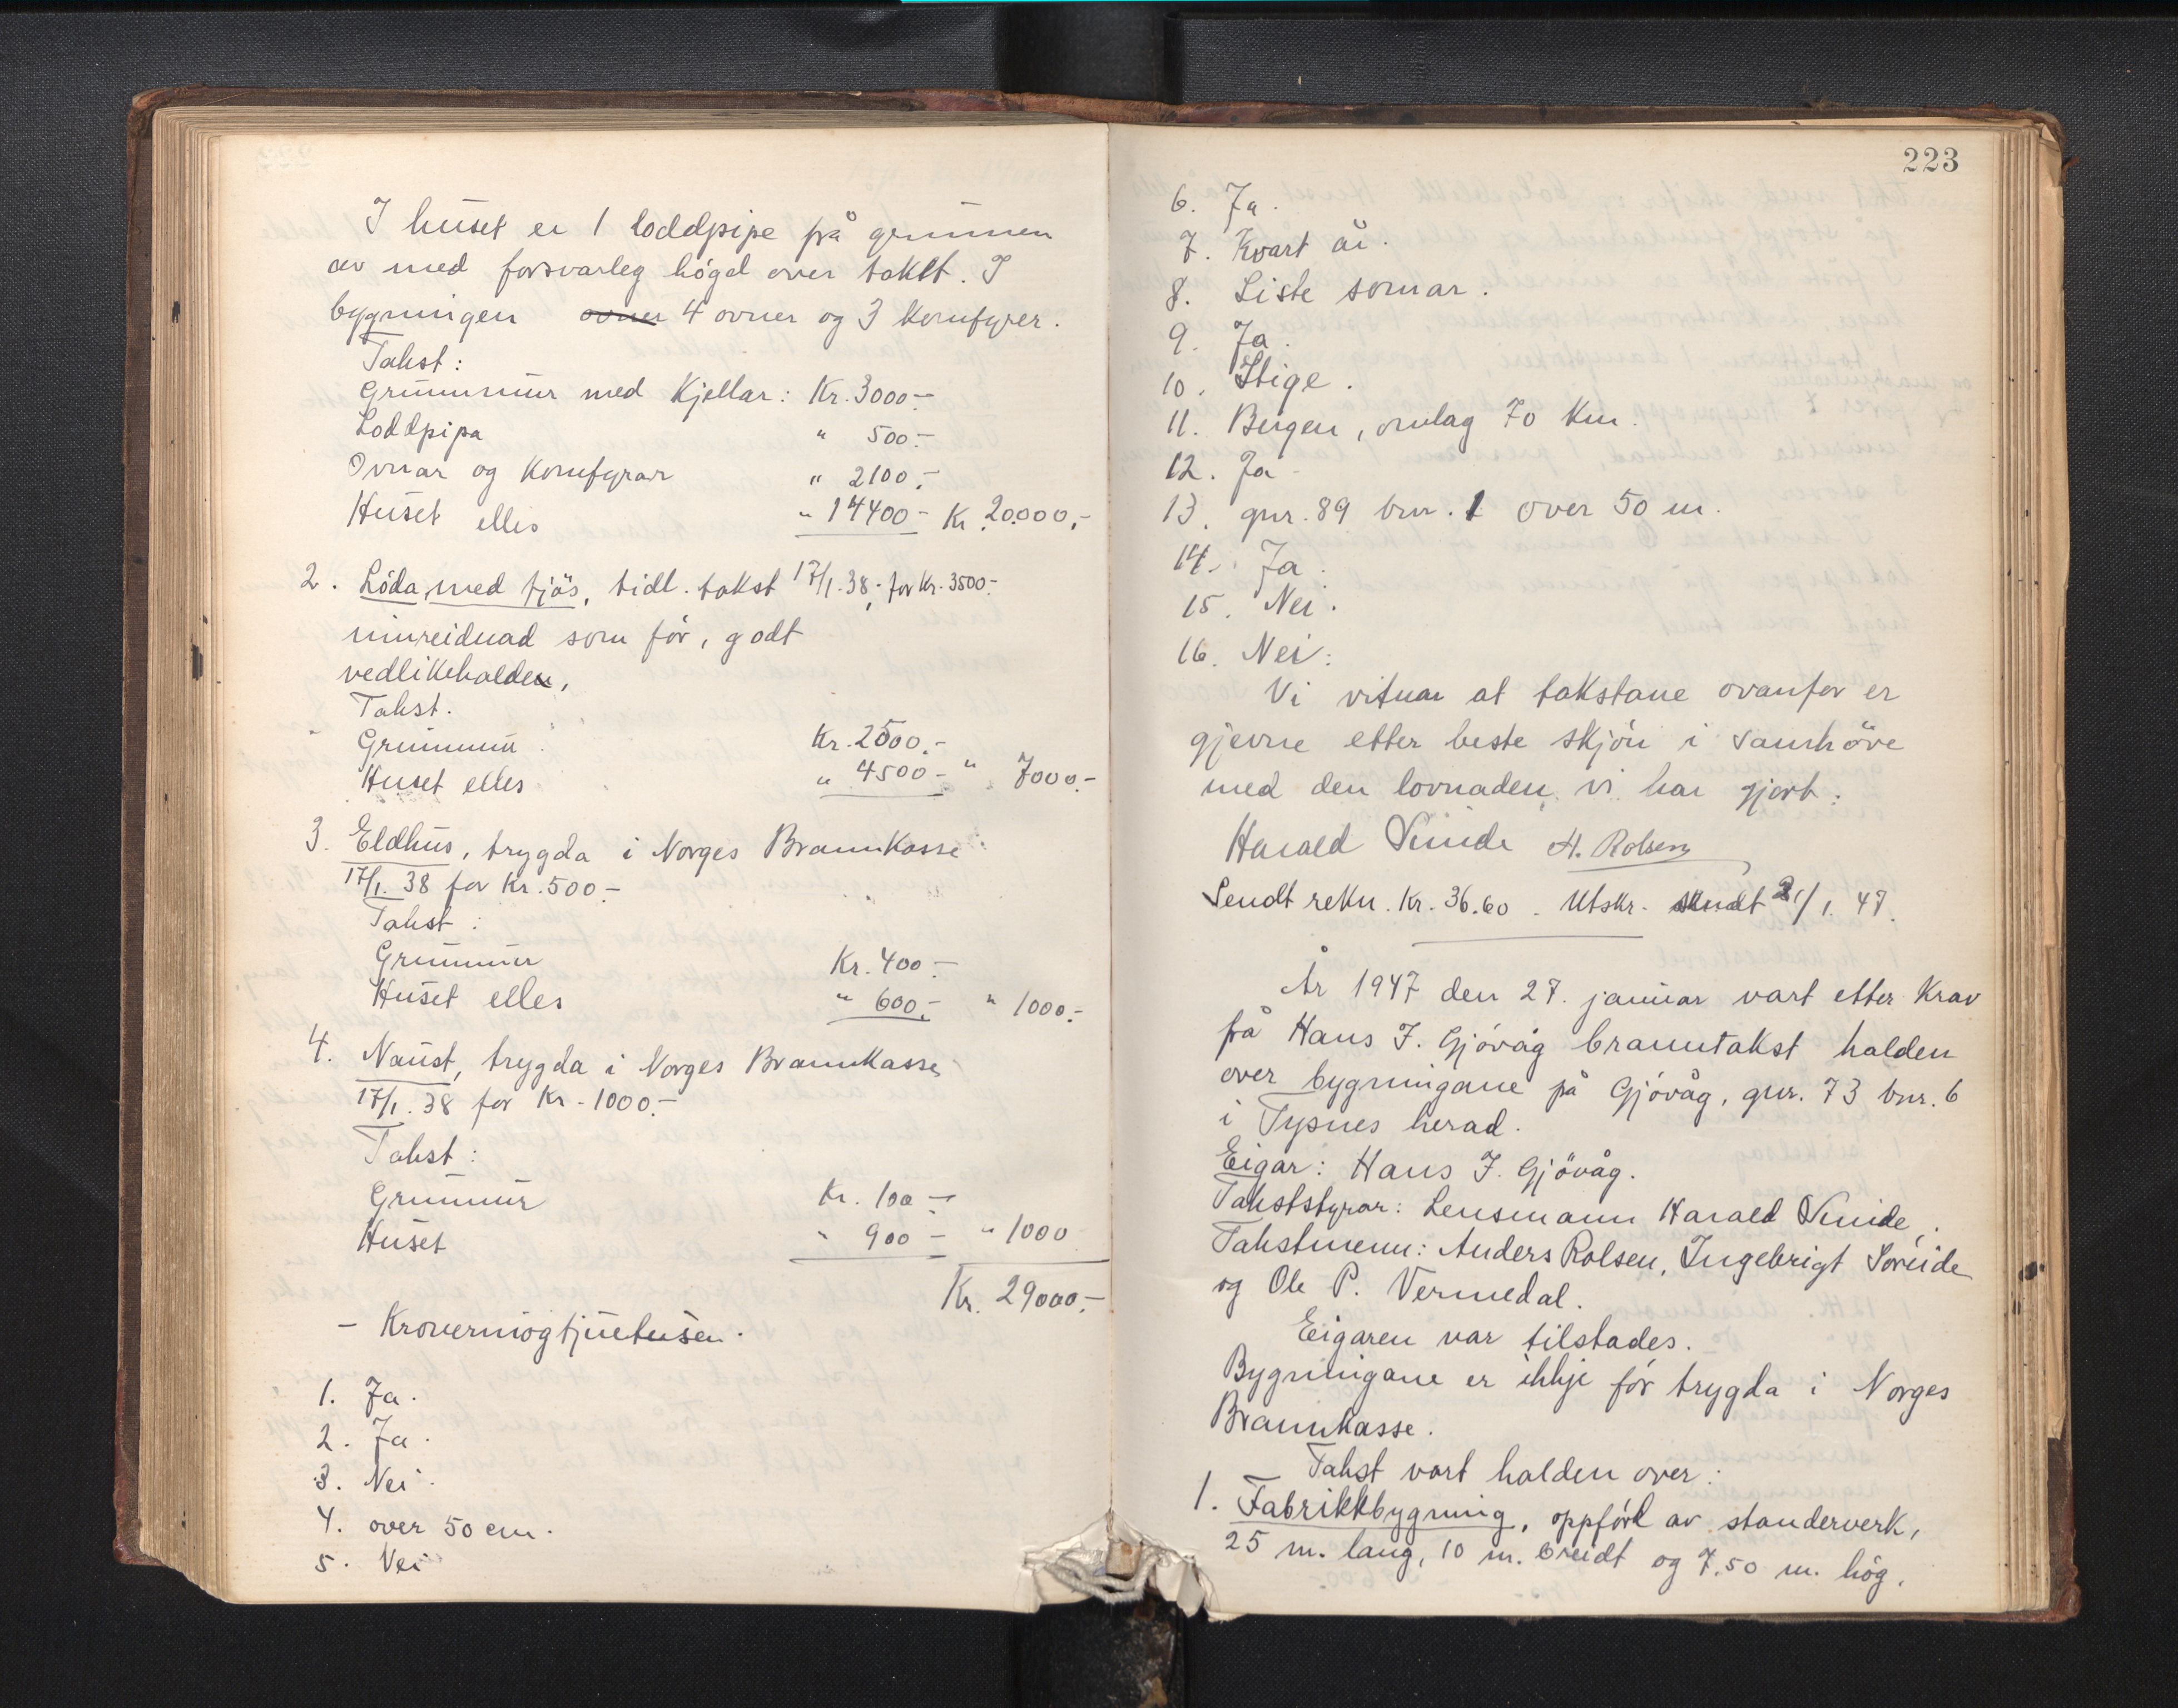 I huset er 1 loddpipe frå grunnen
av med forsvarleg högd over taket. I
bygningen ovner 4 ovner og 3 komfyrer.
Takst:
Grunnmur med Kjellar: Kr. 3000.-
Loddpipa " 500.-
Ovnar og Komfyrar " 2100.-
Huset elles " 14400.- Kr. 20.000,-
2. Löda med fjös, tidl. takst 17/1.38. for Kr. 3500.-
innreidnad som för, godt
vedlikehalden,
Takst.
Grunnmur Kr. 2500.-
Huset elles " 4500.- " 7000.-
3. Eldhus, trygda i Norges Brannkasse
17/1. 38 for Kr. 500.-
Takst:
Grunnmur Kr. 400.-
Huset elles " 600.- " 1000.-
4. Naust, trygda i Norges Brannkasse
17/1. 38 for Kr. 1000.-
Takst:
Grunnmur Kr. 100.-
Huset " 900.- " 1000
Kr. 29000.-
1. Ja.
2. Ja.
3. Nei.
4. over 50 cm.
5. Nei
223
6. Ja.
7. Kvart år.
8. Liste somar.
9. Ja.
10. Stige.
11. Bergen, omlag 70 Km.
12. Ja
13. gnr. 89 bnr. 1 over 50 m.
14. Ja.
15. Nei.
16. Nei.
Vi vitnar at takstane ovanfor er
gjevne etter beste skjön i samhöve
med den lovnaden vi har gjort.
Harald Sunde A. Rolsen
Sendt rekn. Kr. 36.60. Utskr. sendt 21/1. 47.
År 1947 den 27. januar vart etter Krav
frå Hans J. Gjövåg branntakst halden
over bygningane på Gjövåg, gnr. 73 bnr. 6
i Tysnes herad.
Eigar: Hans J. Gjövåg.
Takststyrar: Lensmann Harald Sunde.
Takstmenn: Anders Rolsen, Ingebrigt Soreide
og Ole P. Vermedal.
Eigaren var tilstades.
Bygningane er ikkje för trygda i Norges
Brannkasse.
Takst vart halden over:
1. Fabrikkbygning, oppförd av standerverk,
25 m. lang, 10 m. breidt og 7.50 m. hög.